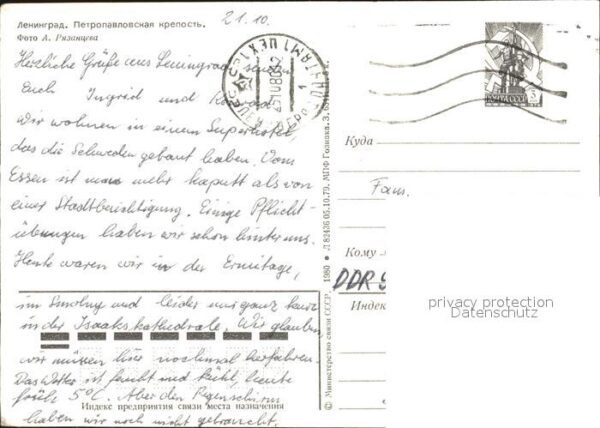 Ленинград. Петропавловская крепость.
Фото А. Рязанцева
21.10.
Herzliche Grüße aus Leningrad senden
Euch Ingrid und
Wir wohnen in einem Superhotel
das die Schweden gebaut haben. Vom
Essen ist man mehr kaputt als von
einer Stadtbesichtigung. Einige Pflicht-
übungen haben wir schon hinter uns.
Heute waren wir in der Ermitage,
im Smolny und leider nur ganz kurz
in der Isaakskathedrale. Wir glauben
wir müssen hier nochmal herfahren.
Das Wetter ist feucht und kühl, heute
früh 5°C. Aber den Regenschirm
haben wir noch nicht gebraucht.
Индекс предприятия связи места назначения
ПОЧТА СССР
Куда
Fam.
Кому
DDR
Индекс
privacy protection
Datenschutz